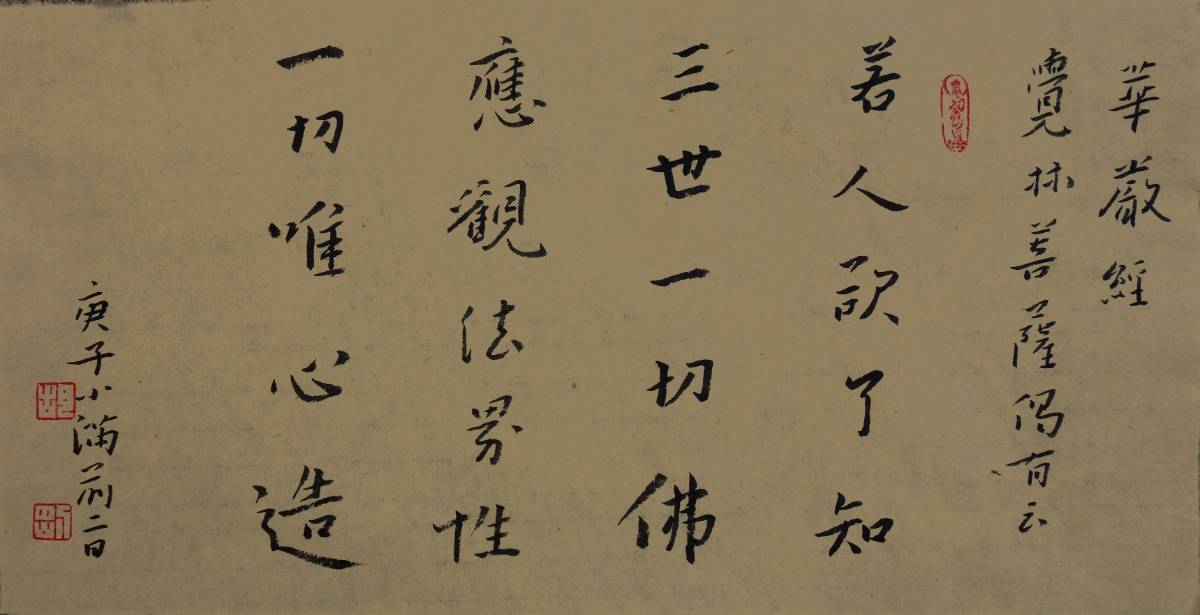 華嚴經
覺林菩薩偈有云
若人欲了知
三世一切佛
應觀法界性
一切唯心造
庚子小滿前二日